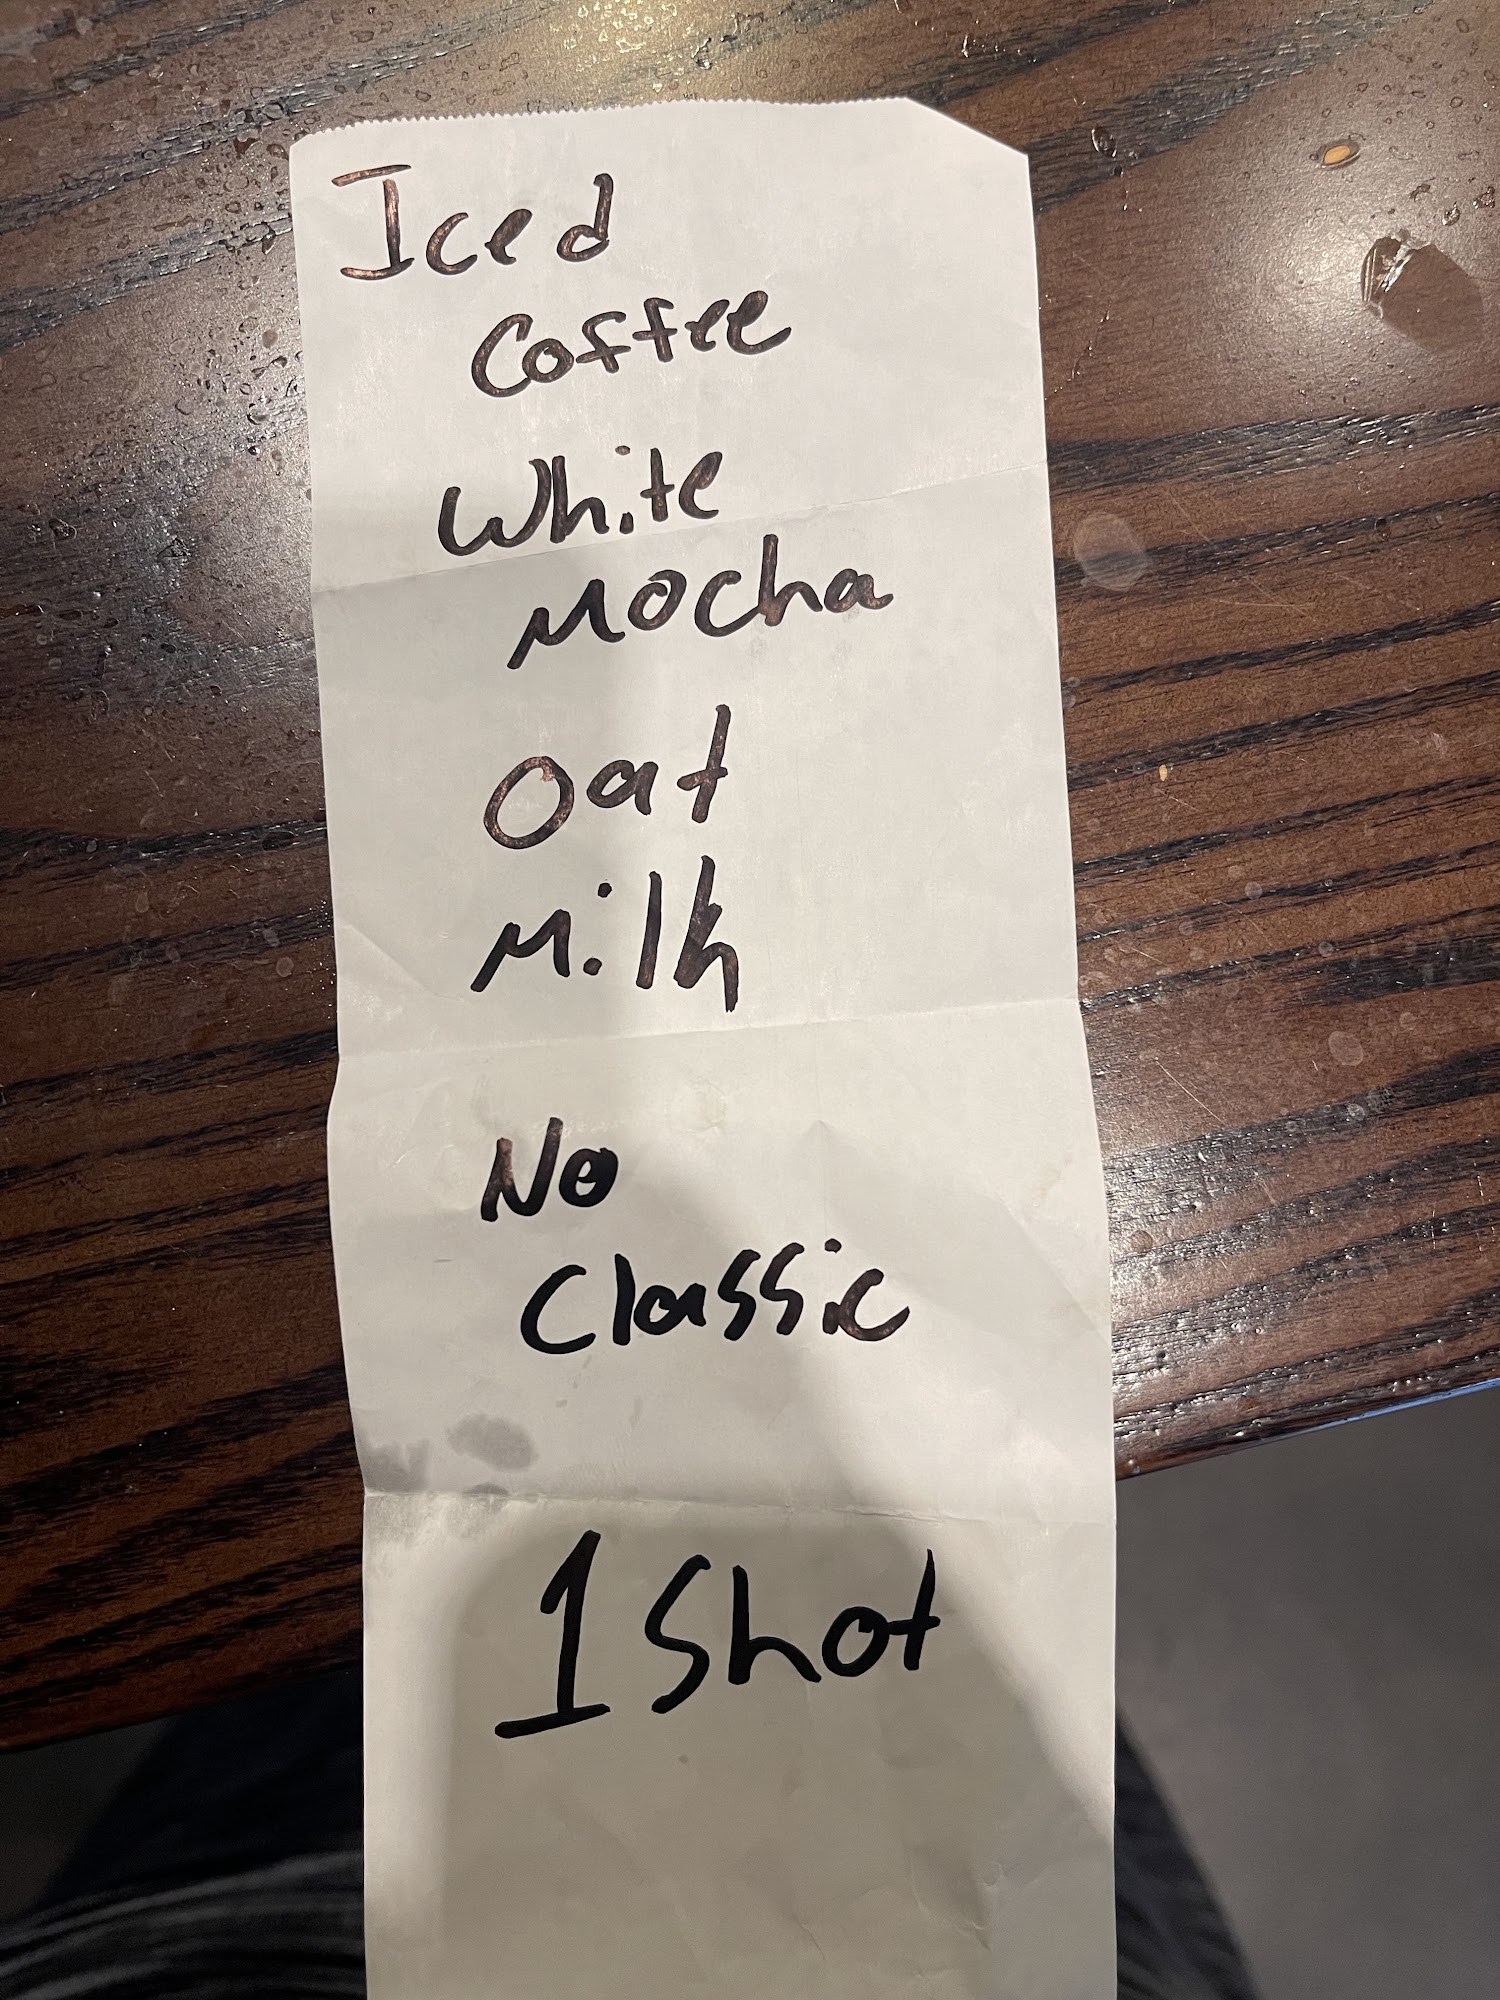 Iced
Coffee
White
Mocha
Oat
Milk
No
Classic
1 Shot